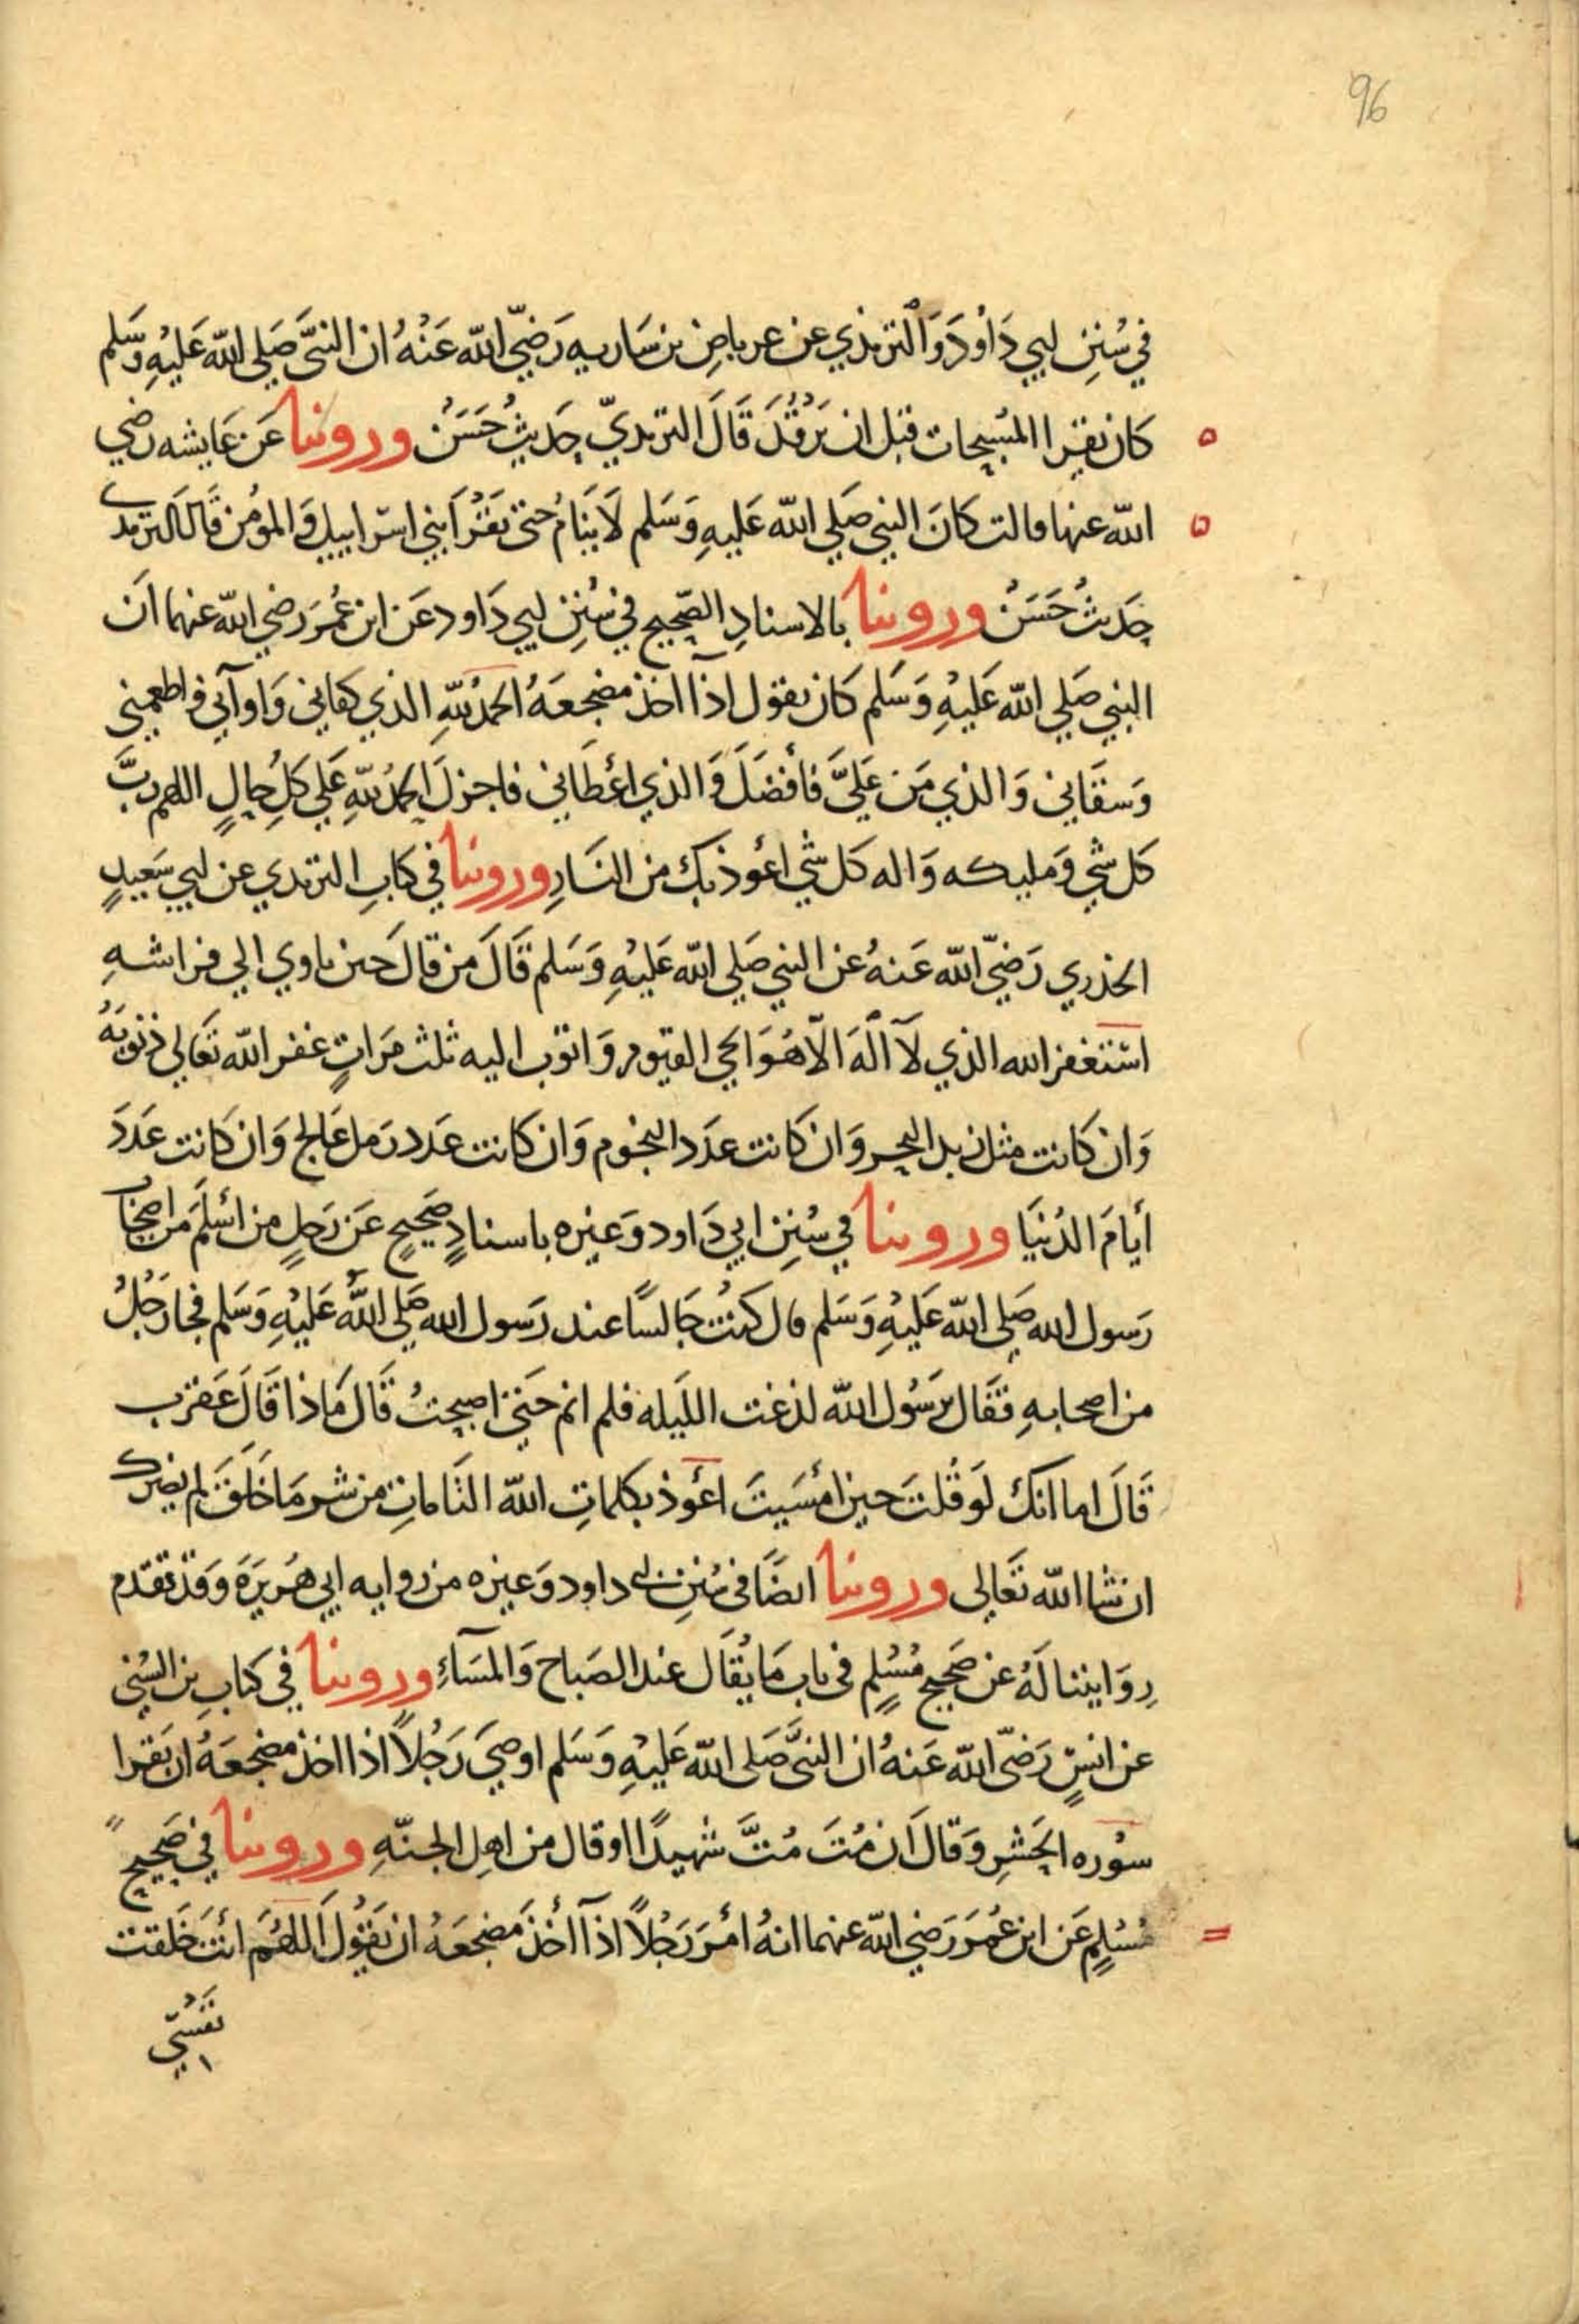 96
في سُنَنِ ابي دَاوُدَ وَالترمذي عن عرباضِ بن سَاريه رَضيَّ الله عَنْهُ ان النبيَّ صَلي الله عَليْهِ وَسَلم
كان يقرا المسَبحات قبل ان يَرقُدَ قَالَ الترمديّ حَديثُ حَسَنُ وروينا عَن عَايشه رضي
الله عنها قالت كانَ النبي صَلي الله عَليهِ وَسَلم لاَ يَنَامُ حتى يَقرُأ بني اسرابيل وَالمؤمن قالَ الترمدي
حَديثُ حَسَنُ وروينا بالاسنادِ الصَحيح في سُنَنِ ابي دَاود عَن ابن عُمَرَ رَضي الله عنهما انَ
النبي صَلي الله عَليْهِ وَسَلم كان يقول اذا اخذ مضجعَهُ الحمدُ للهِ الذي كفاني وَاوآني واطعمني
وَسقَاني وَالذي مَن عَليَّ فأفضَلَ وَالذي اعْطَاني فاجزلَ الحمدُ للهِ عَلي كلِ حالٍ اللهم ربَّ
كل شي وَمليكه وَاله كل شي اعُوذ بك من النَارِ وروينا في كتابِ الترمدي عن ابي سَعيدٍ
الخدري رَضيّ الله عَنهُ عن النبي صَلي الله عَليْهِ وَسَلم قَالَ من قالَ حين ياوي الي فراشهِ
استغفر الله الذي لآ الَهَ الاّ هُوَ الحي القيوم وَاتوب اليه ثلث مَراتٍ غفر الله تعَالي ذنوبَهُ
وَان كانت مثل زبد البحر وَان كَانت عدَد النجُوم وَان كانت عدَد رَمل عَالج وَان كانت عدَدَ
أيامَ الدُنيَا وروينا في سُنَنِ ابي دَاود وَغيره باسنادٍ صَحيحٍ عَن رَجلٍ من اسْلمَ من اصحَاب
رَسول الله صَلي الله عَليْهِ وَسَلم قال كنتُ جَالسًا عند رَسول الله صَلي اللهُ عَليْهِ وَسَلم فجا رَجُلُ
من اصحابهِ فقَال يَرسُول الله لذغت الليَله فلم انم حَتى اصبحتُ قَال مَاذا قَالَ عَقرب
قَالَ اما انك لَو قلتَ حين امْسَيتَ اعُوذ بكلماتِ الله التَاماتِ من شر مَا خَلَقَ لم يضرك
ان شا الله تعَالي وروينا ايضًا في سُنَنِ ابي داود وَغيره من روايه ابي هُريَرَة وَقد تقدم
رِوَايتنا لَهُ عن صَحيح مُسْلمٍ في باب مَا يُقَال عند الصَباح وَالمسَآءِ وروينا في كتابِ بن السُني
عن انسٍ رَضيّ الله عَنهُ ان النبيَّ صَلي الله عَليْهِ وَسَلم اوصَي رَجُلاً اذا اخذ مضجعَهُ ان يَقرا
سُوره الحَشرِ وَقالَ ان مُتَ مُتَّ شهيدًا او قال من اهلِ الجنّهِ وروينا في صَحيح
مُسْلمٍ عَن ابن عُمَرَ رَضي الله عنهما انهُ امْرَ رَجُلاً اذآ اخذَ مَضجعَهُ ان يَقُولَ اللهُمَ انتَ خَلقت
نفسي